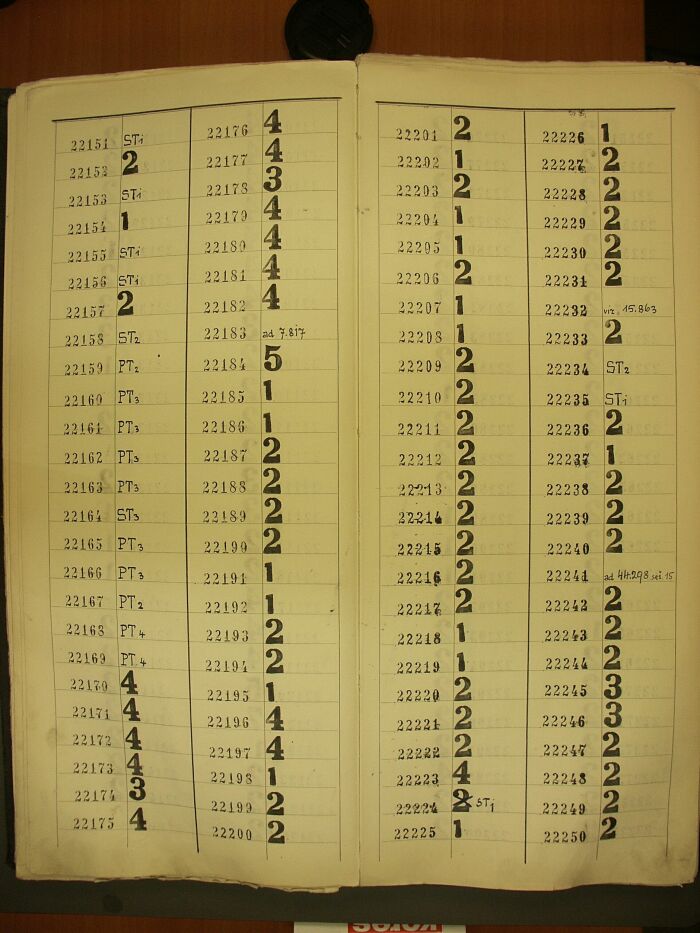 22151 STi
22152 2
22153 STi
22154 1
22155 STi
22156 STi
22157 2
22158 ST2
22159 PT2
22160 PT3
22161 PT3
22162 PT3
22163 PT3
22164 ST3
22165 PT3
22166 PT3
22167 PT2
22168 PT4
22169 PT4
22170 4
22171 4
22172 4
22173 4
22174 3
22175 4
22176 4
22177 4
22178 3
22179 4
22180 4
22181 4
22182 4
22183 ad 7.817
22184 5
22185 1
22186 1
22187 2
22188 2
22189 2
22190 2
22191 1
22192 1
22193 2
22194 2
22195 1
22196 4
22197 4
22198 1
22199 2
22200 2
22201 2
22202 1
22203 2
22204 1
22205 1
22206 2
22207 1
22208 1
22209 2
22210 2
22211 2
22212 2
22213 2
22214 2
22215 2
22216 2
22217 2
22218 1
22219 1
22220 2
22221 2
22222 2
22223 4
22224 2 STi
22225 1
22226 1
22227 2
22228 2
22229 2
22230 2
22231 2
22232 viz. 15.863
22233 2
22234 ST2
22235 STi
22236 2
22237 1
22238 2
22239 2
22240 2
22241 ad 44.298 sei 15
22242 2
22243 2
22244 2
22245 3
22246 3
22247 2
22248 2
22249 2
22250 2